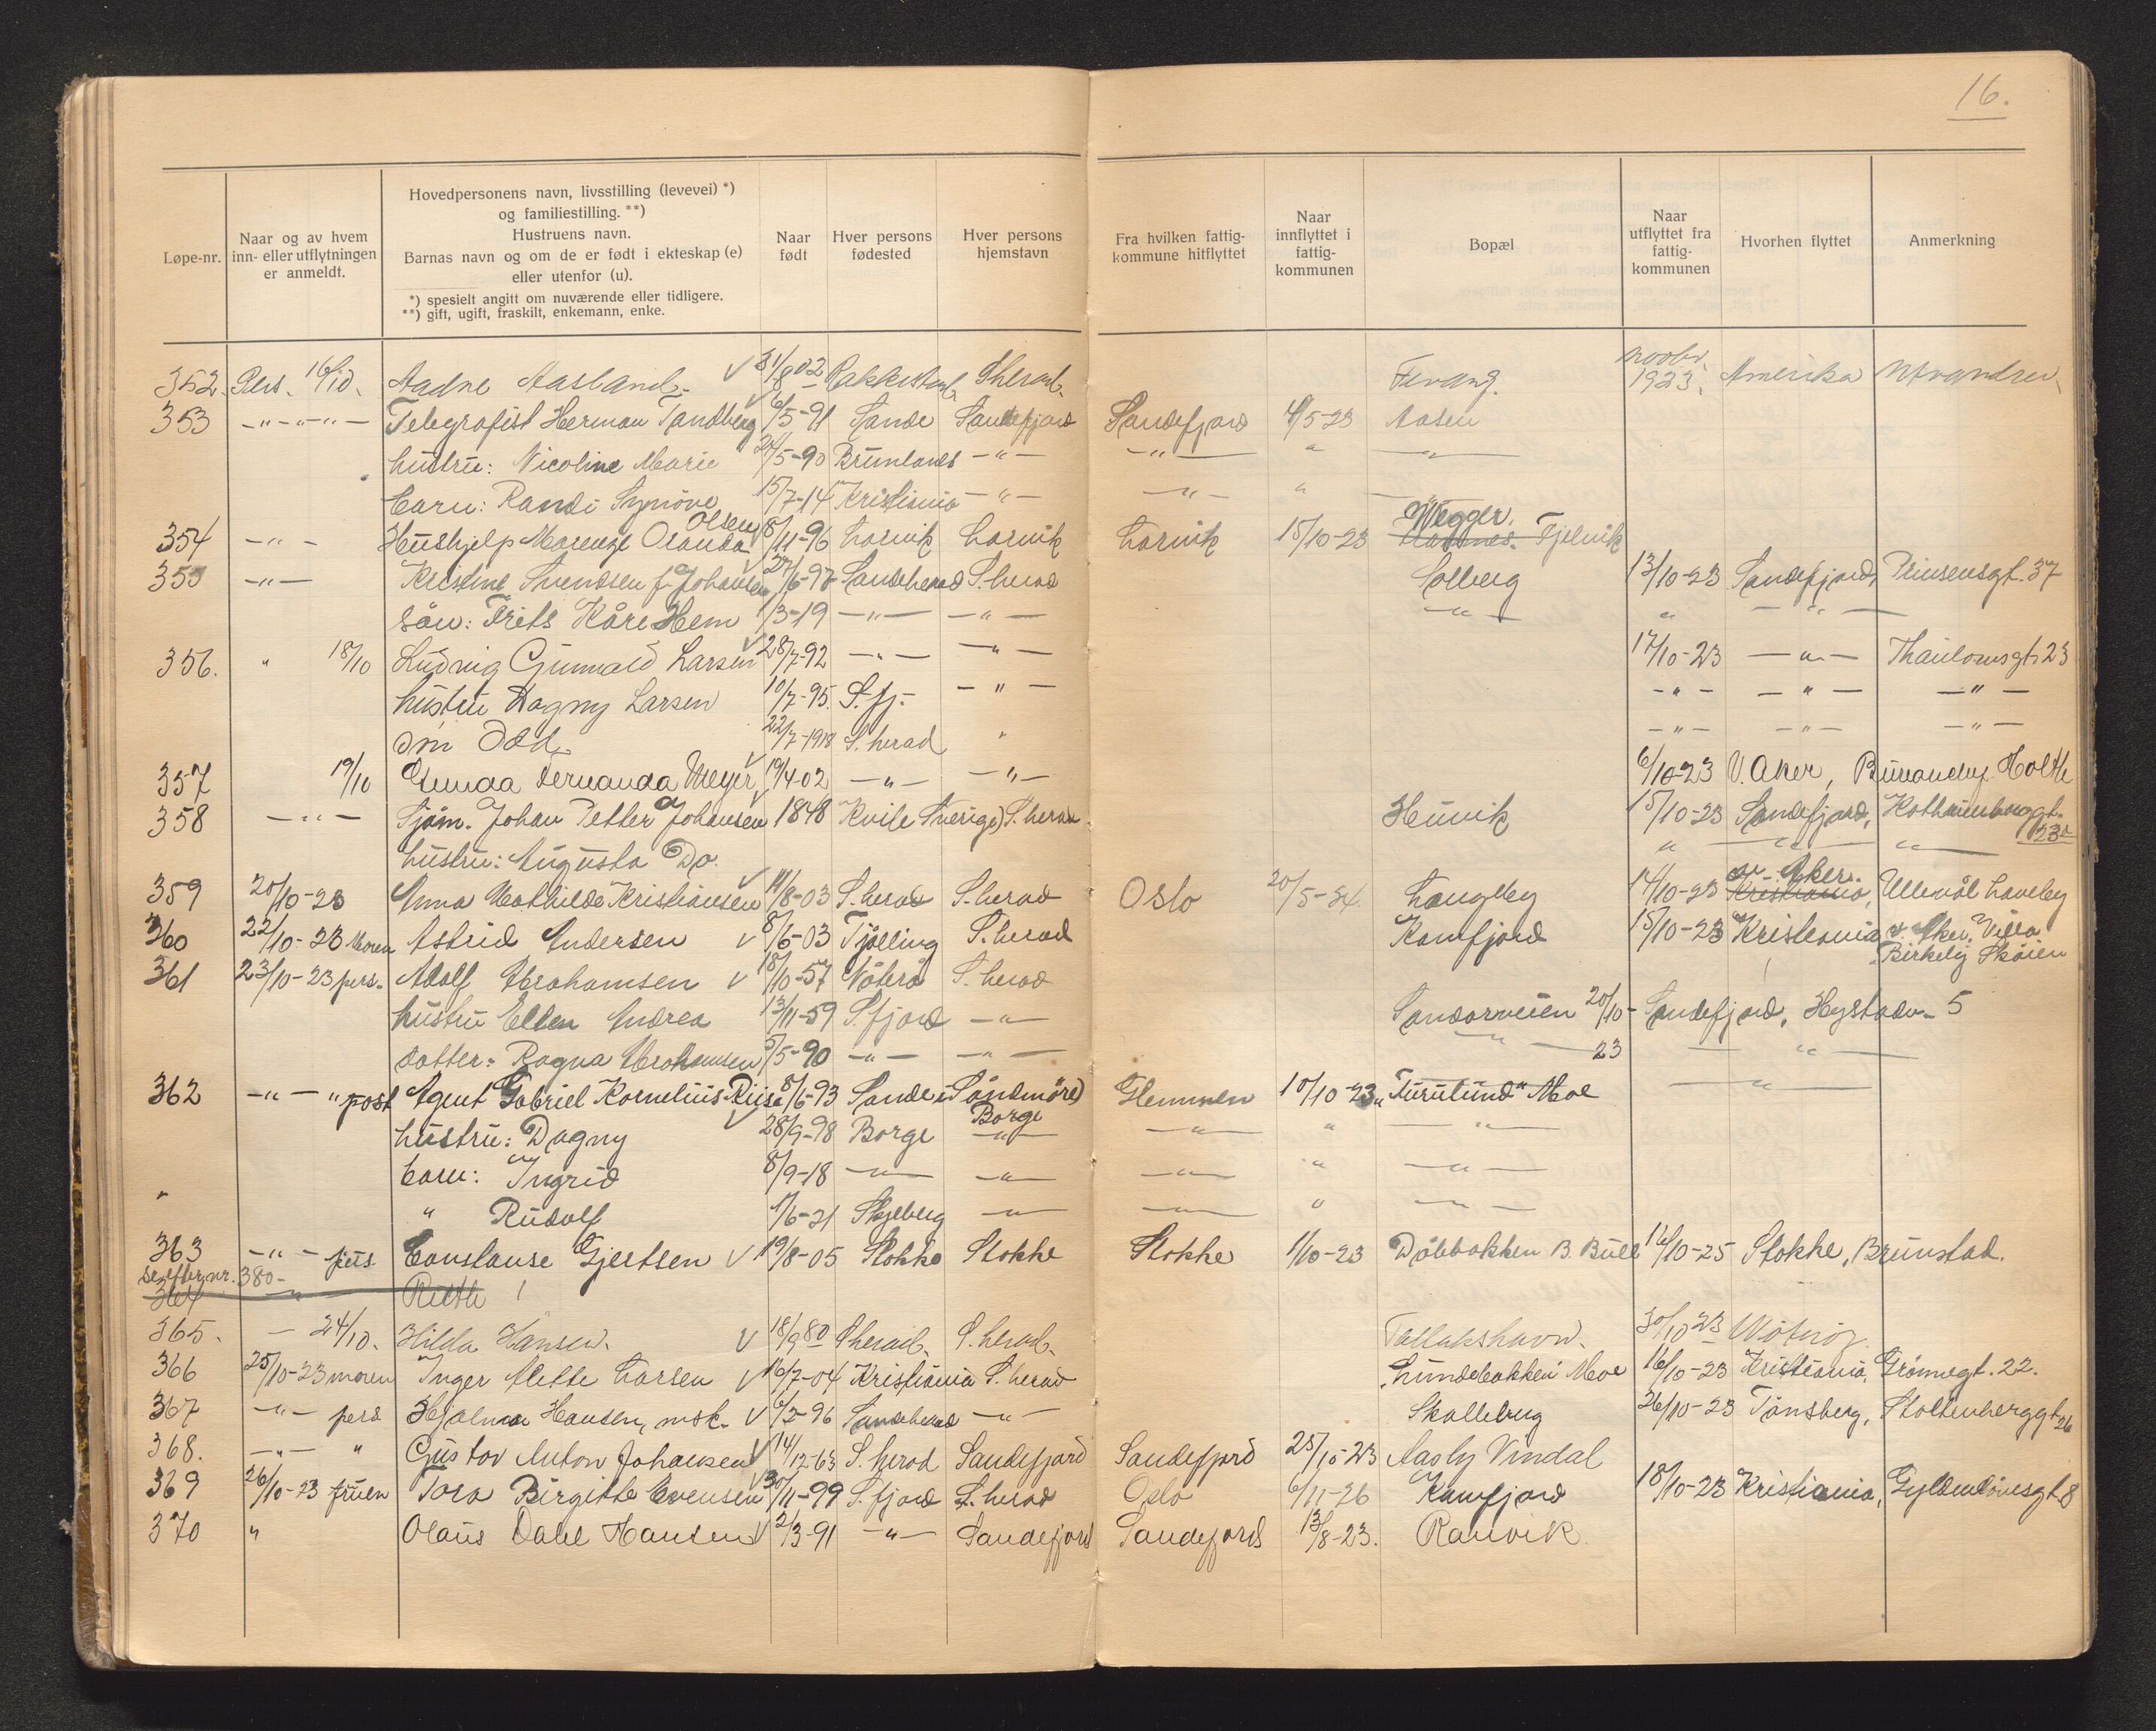 16.
Løpe-nr.
Naar og av hvem inn- eller utflytningen er anmeldt.
Hovedpersonens navn, livsstilling (levevei) *) og familiestilling. **)
Hustruens navn.
Barnas navn og om de er født i ekteskap (e) eller utenfor (u).
*) spesielt angitt om nuværende eller tidligere.
**) gift, ugift, fraskilt, enkemann, enke.
Naar født
Hver persons fødested
Hver persons hjemstavn
Fra hvilken fattigkommune hitflyttet
Naar innflyttet i fattigkommunen
Bopæl
Naar utflyttet fra fattigkommunen
Hvorhen flyttet
Anmerkning
352. Pers. 16/10. Aadne Aasland. 31/8 02 Rakkestad Sherad. Fevang. Novbr. 1923. Amerika Utvandrer
353 -"-"-"- Telegrafist Herman Tandberg 6/5-91 Sande Sandefjord Sandefjord 4/5-23 Aasen
hustru: Nicoline Marie 24/5-90 Brunlanes -"- -"- " "
barn: Randi Synøve 15/7-14 Kristiania -"- -"- " -"-
354 -"- Hushjelp Marenze Olanda Olsen 8/11-96 Larvik Larvik Larvik 15/10-23 Wegger. Fjelvik
355 -"- Kristine Svendsen f. Johansen 27/6-97 Sandeherad S. herad Solberg 13/10-23 Sandefjord, Prinsensgt. 37
sön: Frits Kåre Hem 1/3-19 -"- -"- -"- " -"-
356. " 18/10 Ludvig Gunvald Larsen 28/7-92 -"- -"- 17/10-23 -"- Thaulowsgt. 23
hustru Dagny Larsen 10/7-95. S.fj. -"- -"- -"- -"-
sön Odd 22/7-1918 S. herad " -"- -"- -"-
357 19/10 Gunda Fernanda Meyer 19/4-02 -"- -"- 6/10-23 V. Aker, Holth
358 -"- Sjöm. Johan Petter Johansen 1848 Kville (Sverige) S. herad Heuvik 15/10-23 Sandefjord, 23a
hustru: Augusta Do. " -"- "
359 20/10-23 Anna Mathilde Kristiansen 14/8-03 S. herad S. herad Oslo 20/5-24. Langeby 14/10-23 Kristiania v. Aker. Ullevål Haveby
360 22/10-23 Moren Astrid Andersen 8/6-03 Tjølling S. herad Kamfjord 15/10-23 Kristiania v. Aker. Villa Birkely Skøien
361 23/10-23 pers. Adolf Abrahamsen 18/10-57 Nøterø S. herad
hustru Ellen Andrea 13/11-59 S.fjord -"- Sandarveien 20/10-23 Sandefjord, Hystadv. 5
datter: Ragna Abrahamsen 5/5-90 -"- -"- -"- -"-
362 -"- " post Agent Gabriel Kornelius Riise 8/6-93 Sande i Söndmöre) Glemmen 10/10-23 "Furulund" Moe -"-
hustru: Dagny 28/9-98 Borge Borge -"- " -"-
barn: Ingrid 8/9-18 -"- -"- -"- " -"-
" Rudolf 1/6-21 Skjeberg -"- -"- " -"-
363 -"- pers. Constanse Gjertsen 19/8-05 Stokke Stokke Stokke 1/10-23 Döbbakken B. Bull 16/10-25 Stokke, Brunstad.
se efter nr. 380-
364 Ruth
365. - 24/10. Hilda Hansen. 18/9 80 Sherad. S. herad. Tallakshavn. 30/10 23 Nöterö
366 25/10-23 moren Inger Mette Larsen 16/7-04 Kristiania S. herad "Lundebakken" Moe 16/10-23 Kristiania, Grönnegt. 22.
367 -"- pers Hjalmar Hansen, msk. 6/2-96 Sandeherad -"- Skallebrug 26/10-23 Tönsberg, Stoltenberggt. 26
368. -"- " Gustav Anton Johansen 14/12-63 S. herad Sandefjord Sandefjord 25/10-23 Aasly Vindal
369 26/10-23 fruen Tora Birgitte Evensen 30/11-99 S.fjord S. herad Oslo 6/11-26 Kamfjord 18/10-23 Kristiania, Gyldenlövesgt. 8
370 " Olaus Dahl Hansen 2/3-91 -"- Sandefjord Sandefjord 13/8-23. Ranvik